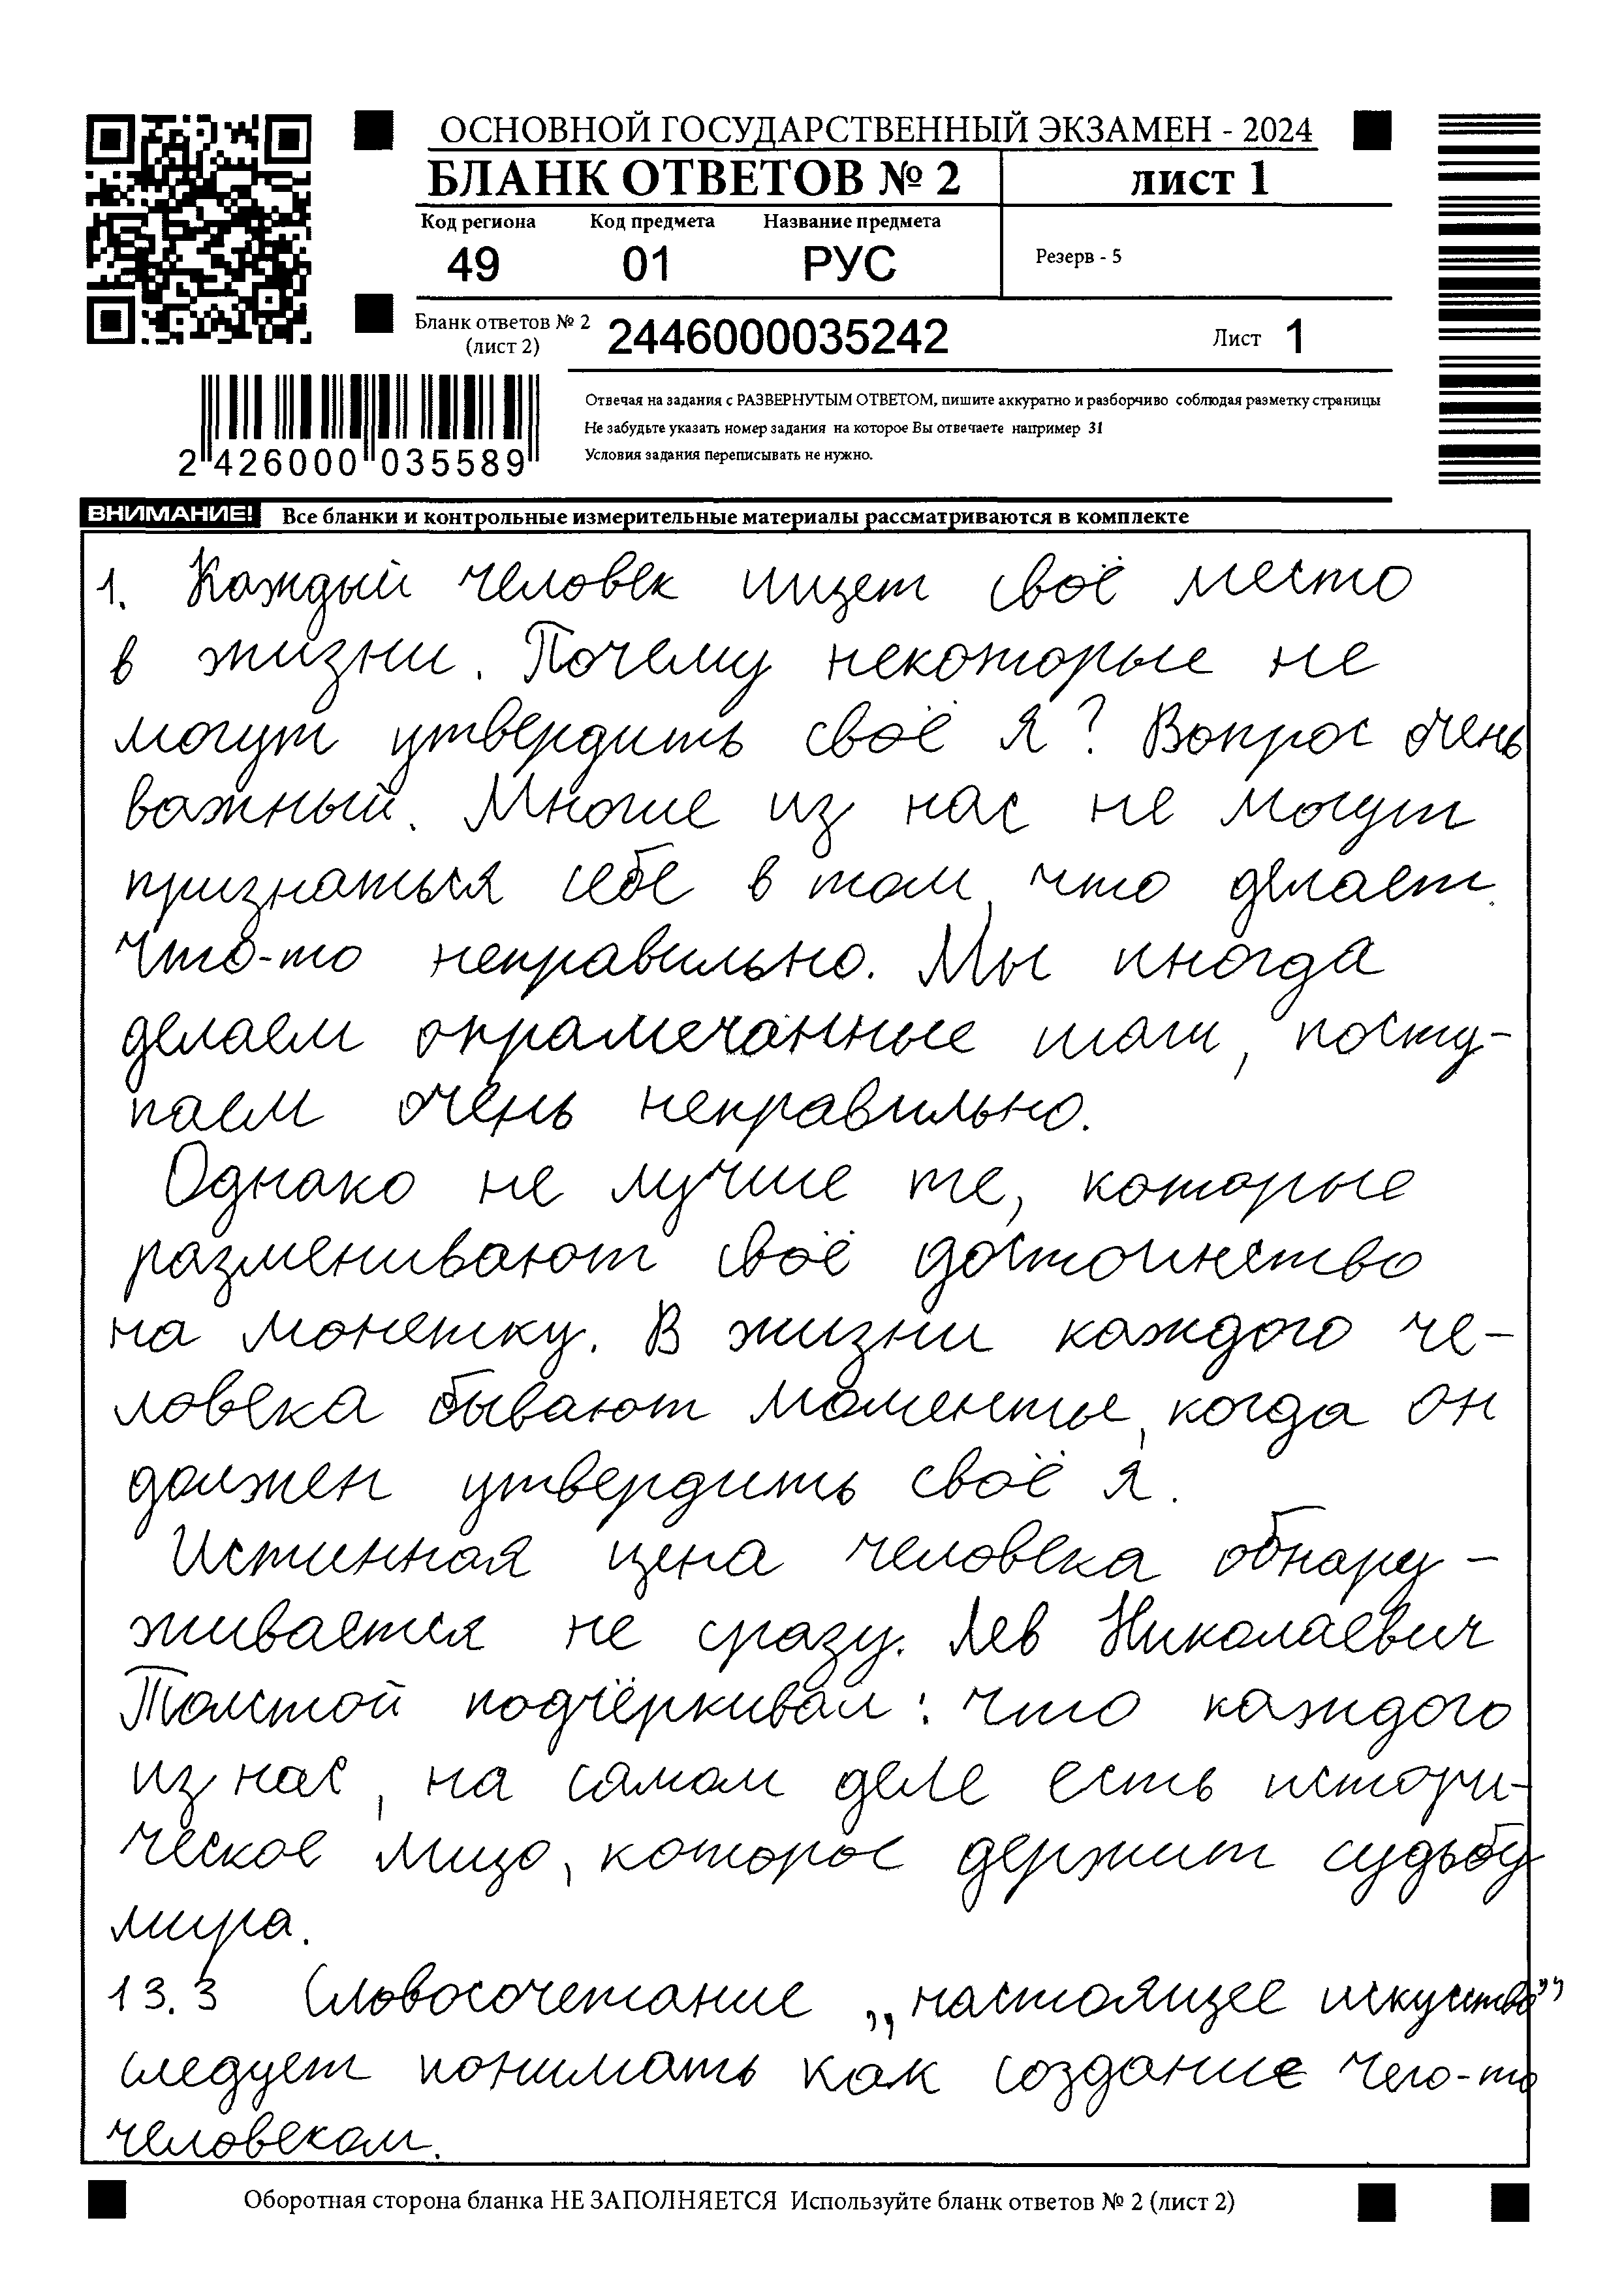 ОСНОВНОЙ ГОСУДАРСТВЕННЫЙ ЭКЗАМЕН - 2024
БЛАНК ОТВЕТОВ № 2
лист 1
Код региона Код предмета Название предмета
49 01 РУС
Резерв - 5
Бланк ответов № 2
(лист 2)
2446000035242
Лист 1
2 426000 035589
Отвечая на задания с РАЗВЕРНУТЫМ ОТВЕТОМ, пишите аккуратно и разборчиво соблюдая разметку страницы
Не забудьте указать номер задания на которое Вы отвечаете например 31
Условия задания переписывать не нужно.
ВНИМАНИЕ! Все бланки и контрольные измерительные материалы рассматриваются в комплекте
1. Каждый человек ищет своё место
в жизни. Почему некоторые не
могут утвердить своё я? Вопрос очень
важный. Многие из нас не могут
признаться себе в том, что делает
что-то неправильно. Мы иногда
делаем опрамечанные шаги, посту-
паем очень неправильно.
Однако не лучше те, которые
разменивают своё достоинство
на монетку. В жизни каждого че-
ловека бывают моменты, когда он
должен утвердить своё я.
Истинная цена человека обнару-
живается не сразу. Лев Николаевич
Толстой подчёркивал: что каждого
из нас, на самом деле есть истори-
ческое лицо, которое держит судьбу
мира.
13.3 Словосочетание „настоящее искусство”
следует понимать как создание чего-то
человеком.
Оборотная сторона бланка НЕ ЗАПОЛНЯЕТСЯ Используйте бланк ответов № 2 (лист 2)